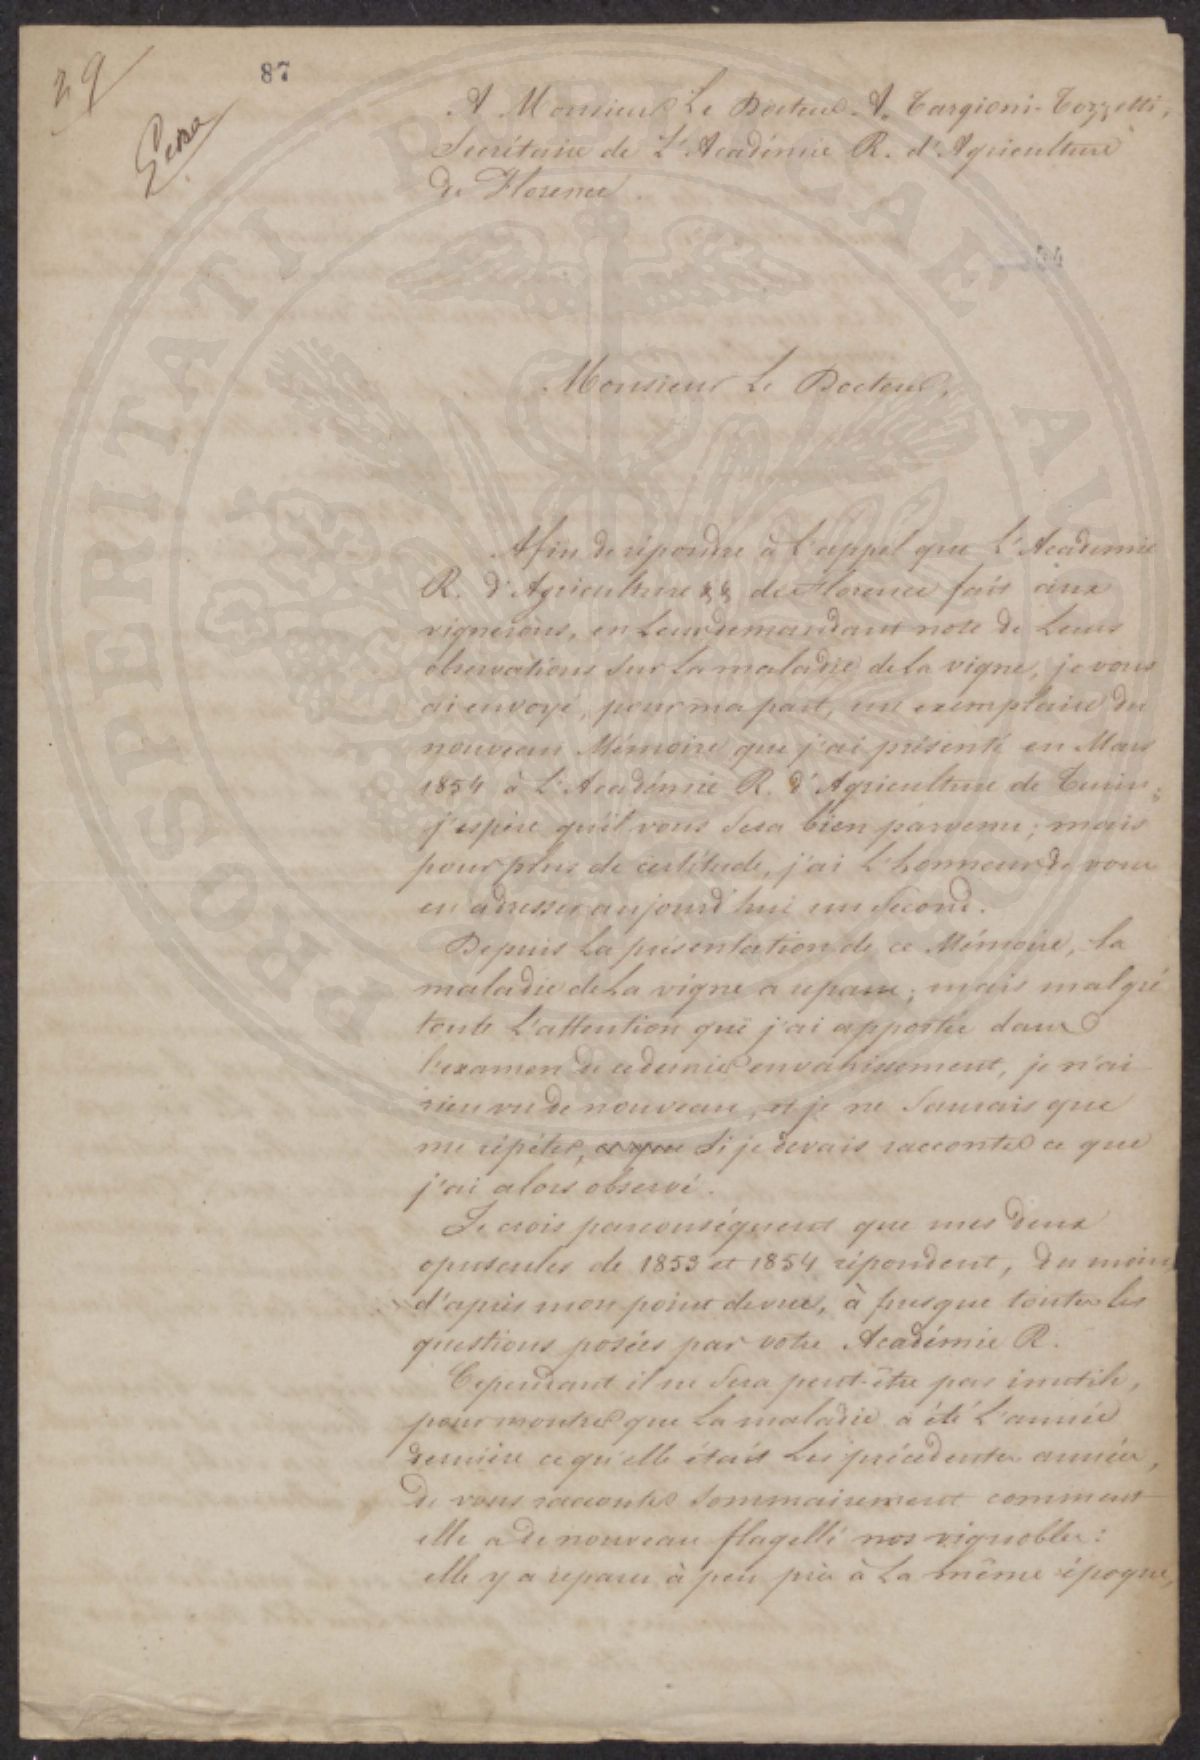 29
87
A Monsieur Le Docteur A. Targioni-Tozzetti,
Secrétaire de L'Académie R. d'Agriculture
de Florence.
Monsieur Le Docteur,
Afin de répondre à l'appel que L'Académie
R. d'Agriculture && de Florence fait aux
vignerons, en Leur demandant note de Leurs
observations Sur La maladie de La vigne, je vous
ai envoyé, pour ma part, un exemplaire du
nouveau Mémoire que j'ai présenté en Mars
1854 à L'Académie R. d'Agriculture de Turin;
j'espère qu'il vous Sera bien parvenu; mais
pour plus de certitude, j'ai L'honneur de vous
en adresser aujourd'hui un Second.
Depuis La présentation de ce Mémoire, La
maladie de La vigne a reparu; mais malgré
toute L'attention que j'ai apportée dans
l'examen de ce dernier envahissement, je n'ai
rien vu de nouveau, et je ne Saurais que
me répéter, Si je devais raconter ce que
j'ai alors observé.
Je crois parconséquent que mes deux
opuscules de 1853 et 1854 répondent, du moins
d'après mon point de vue, à presque toutes les
questions posées par votre Académie R.
Cependant il ne Sera peut-être pas inutile,
pour montrer que La maladie a été L'année
dernière ce qu'elle était Les précédentes années,
de vous raconter Sommairement comment
elle a de nouveau flagellé nos vignobles:
elle y a reparu à peu près à La même époque,
PROSPERITATI PUBLICAE AUGENDAE